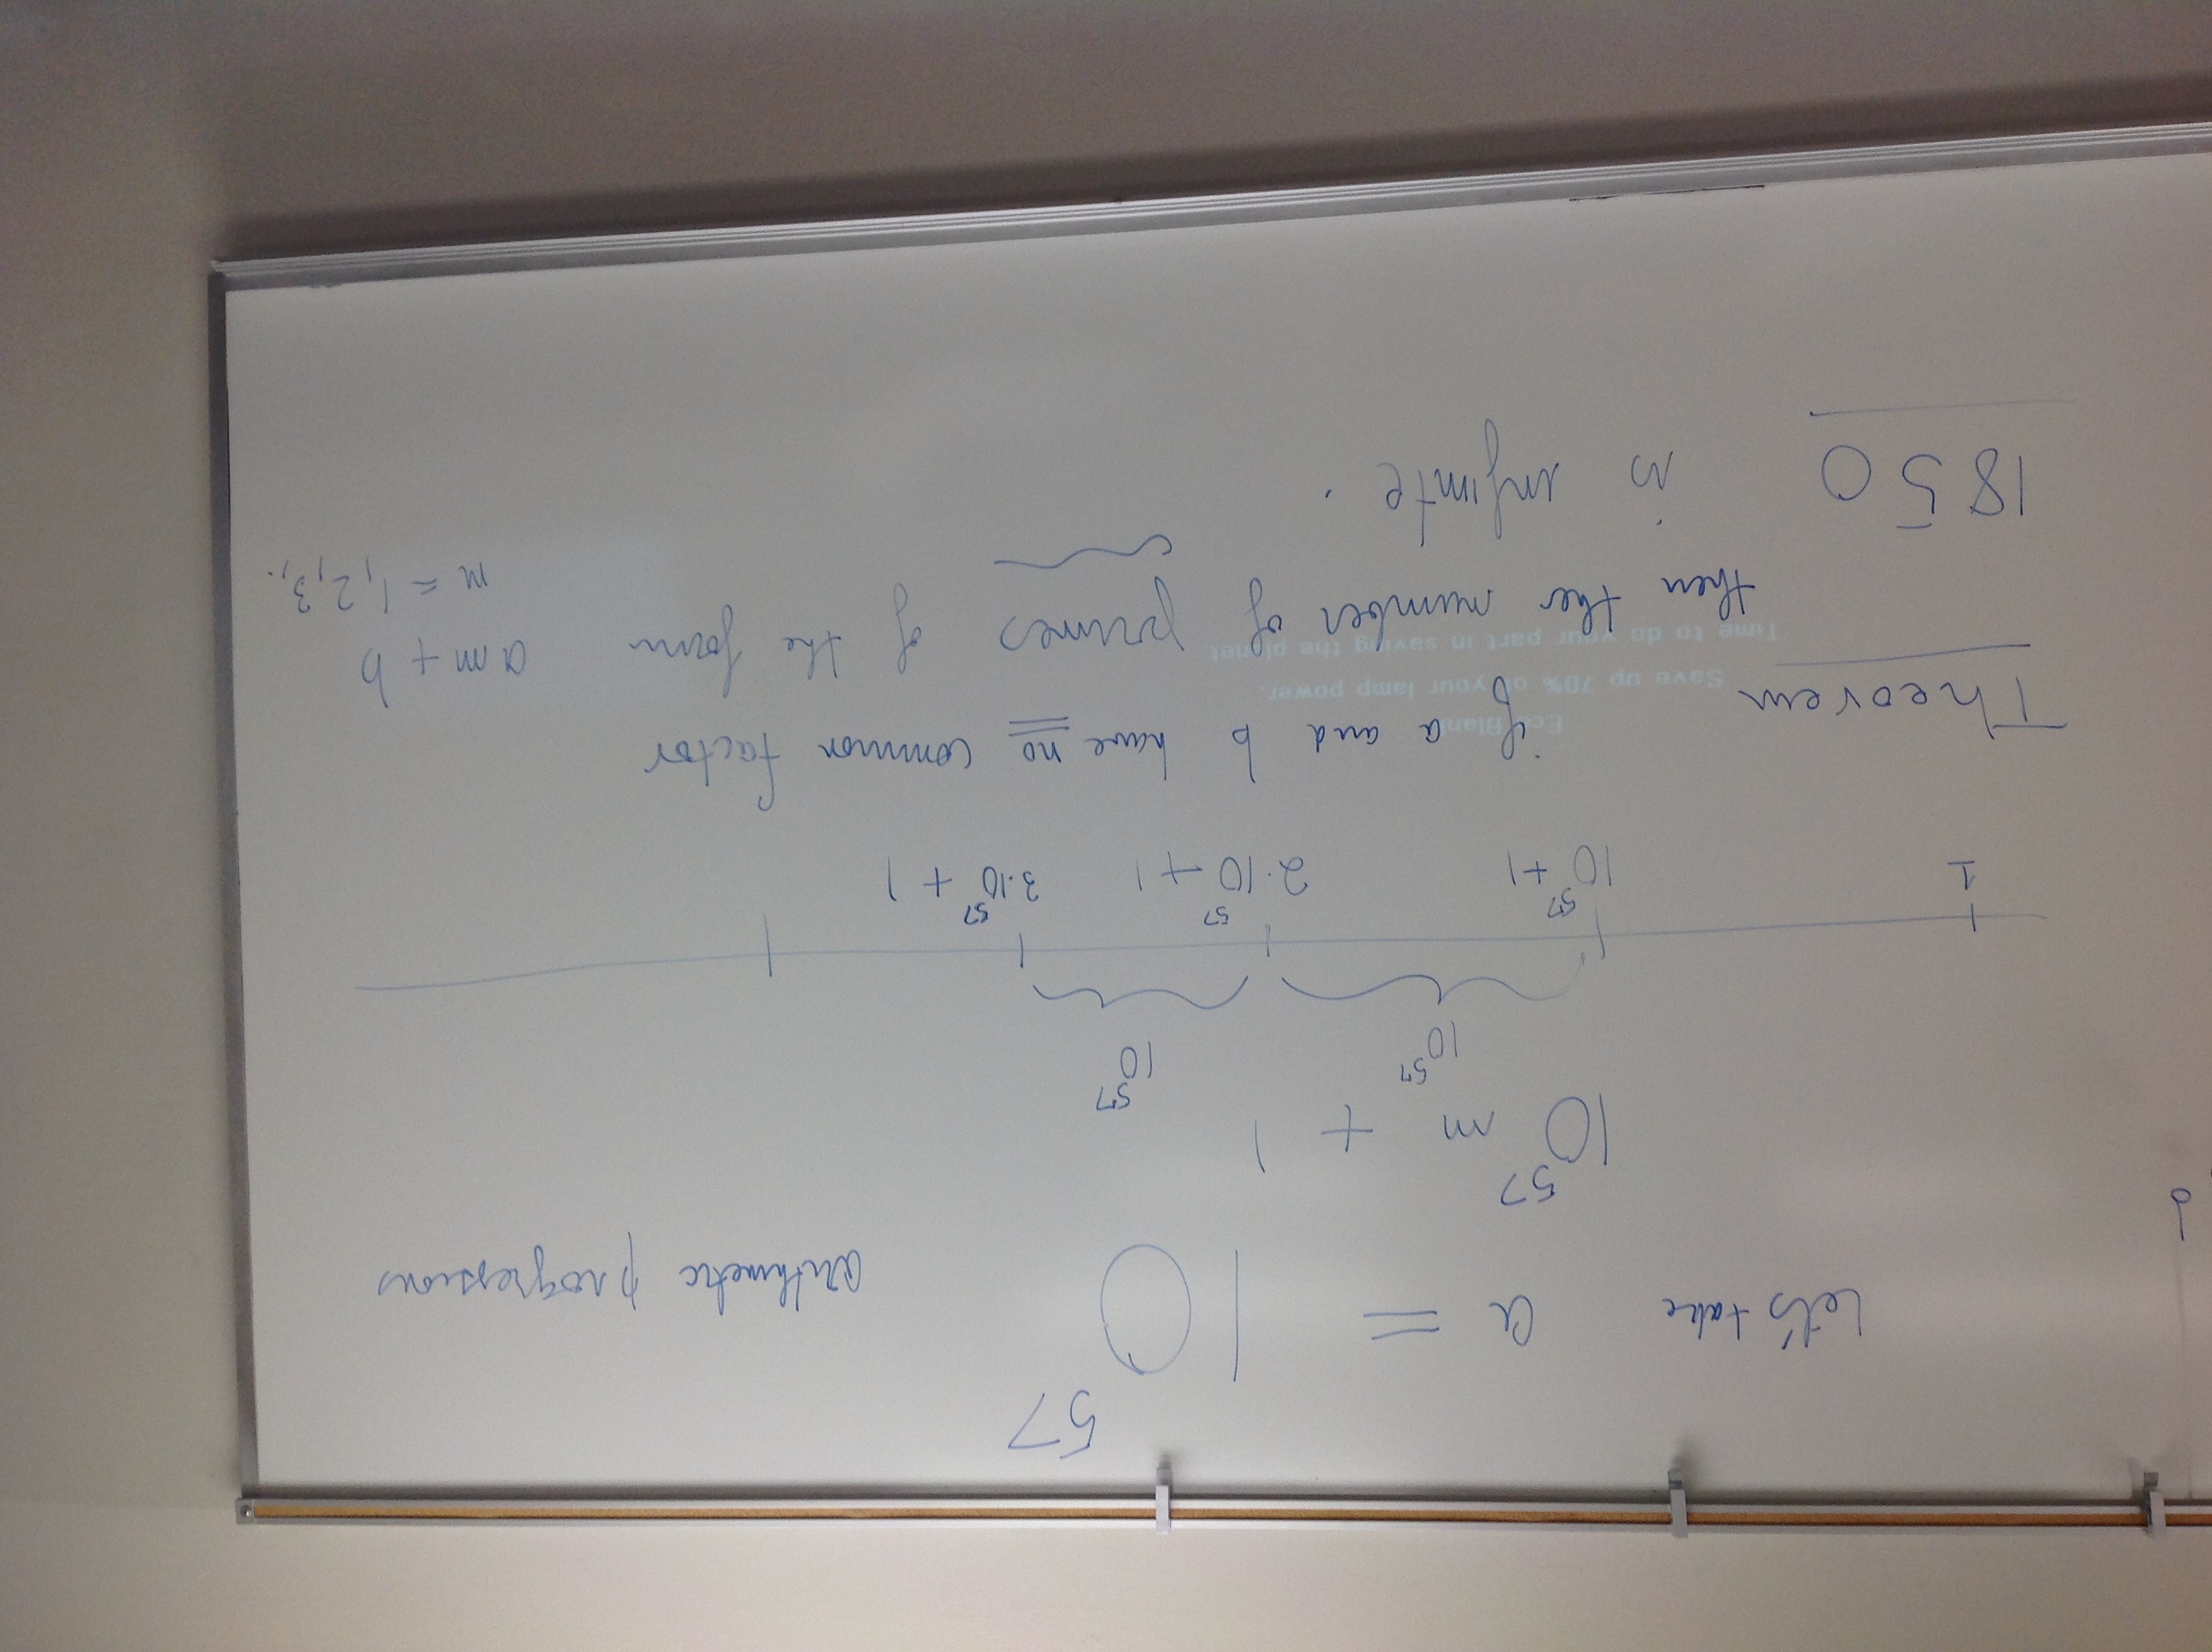 Let's take a = 10^57 arithmetic progressions
10^57 m + 1
10^57 10^57
1 10^57+1 2·10^57+1 3·10^57+1
Theorem if a and b have no common factor
then the number of primes of the form am+b
m=1,2,3,..
1850 is infinite.
EcoBlank
Save up 70% of your lamp power.
Time to do your part in saving the planet.